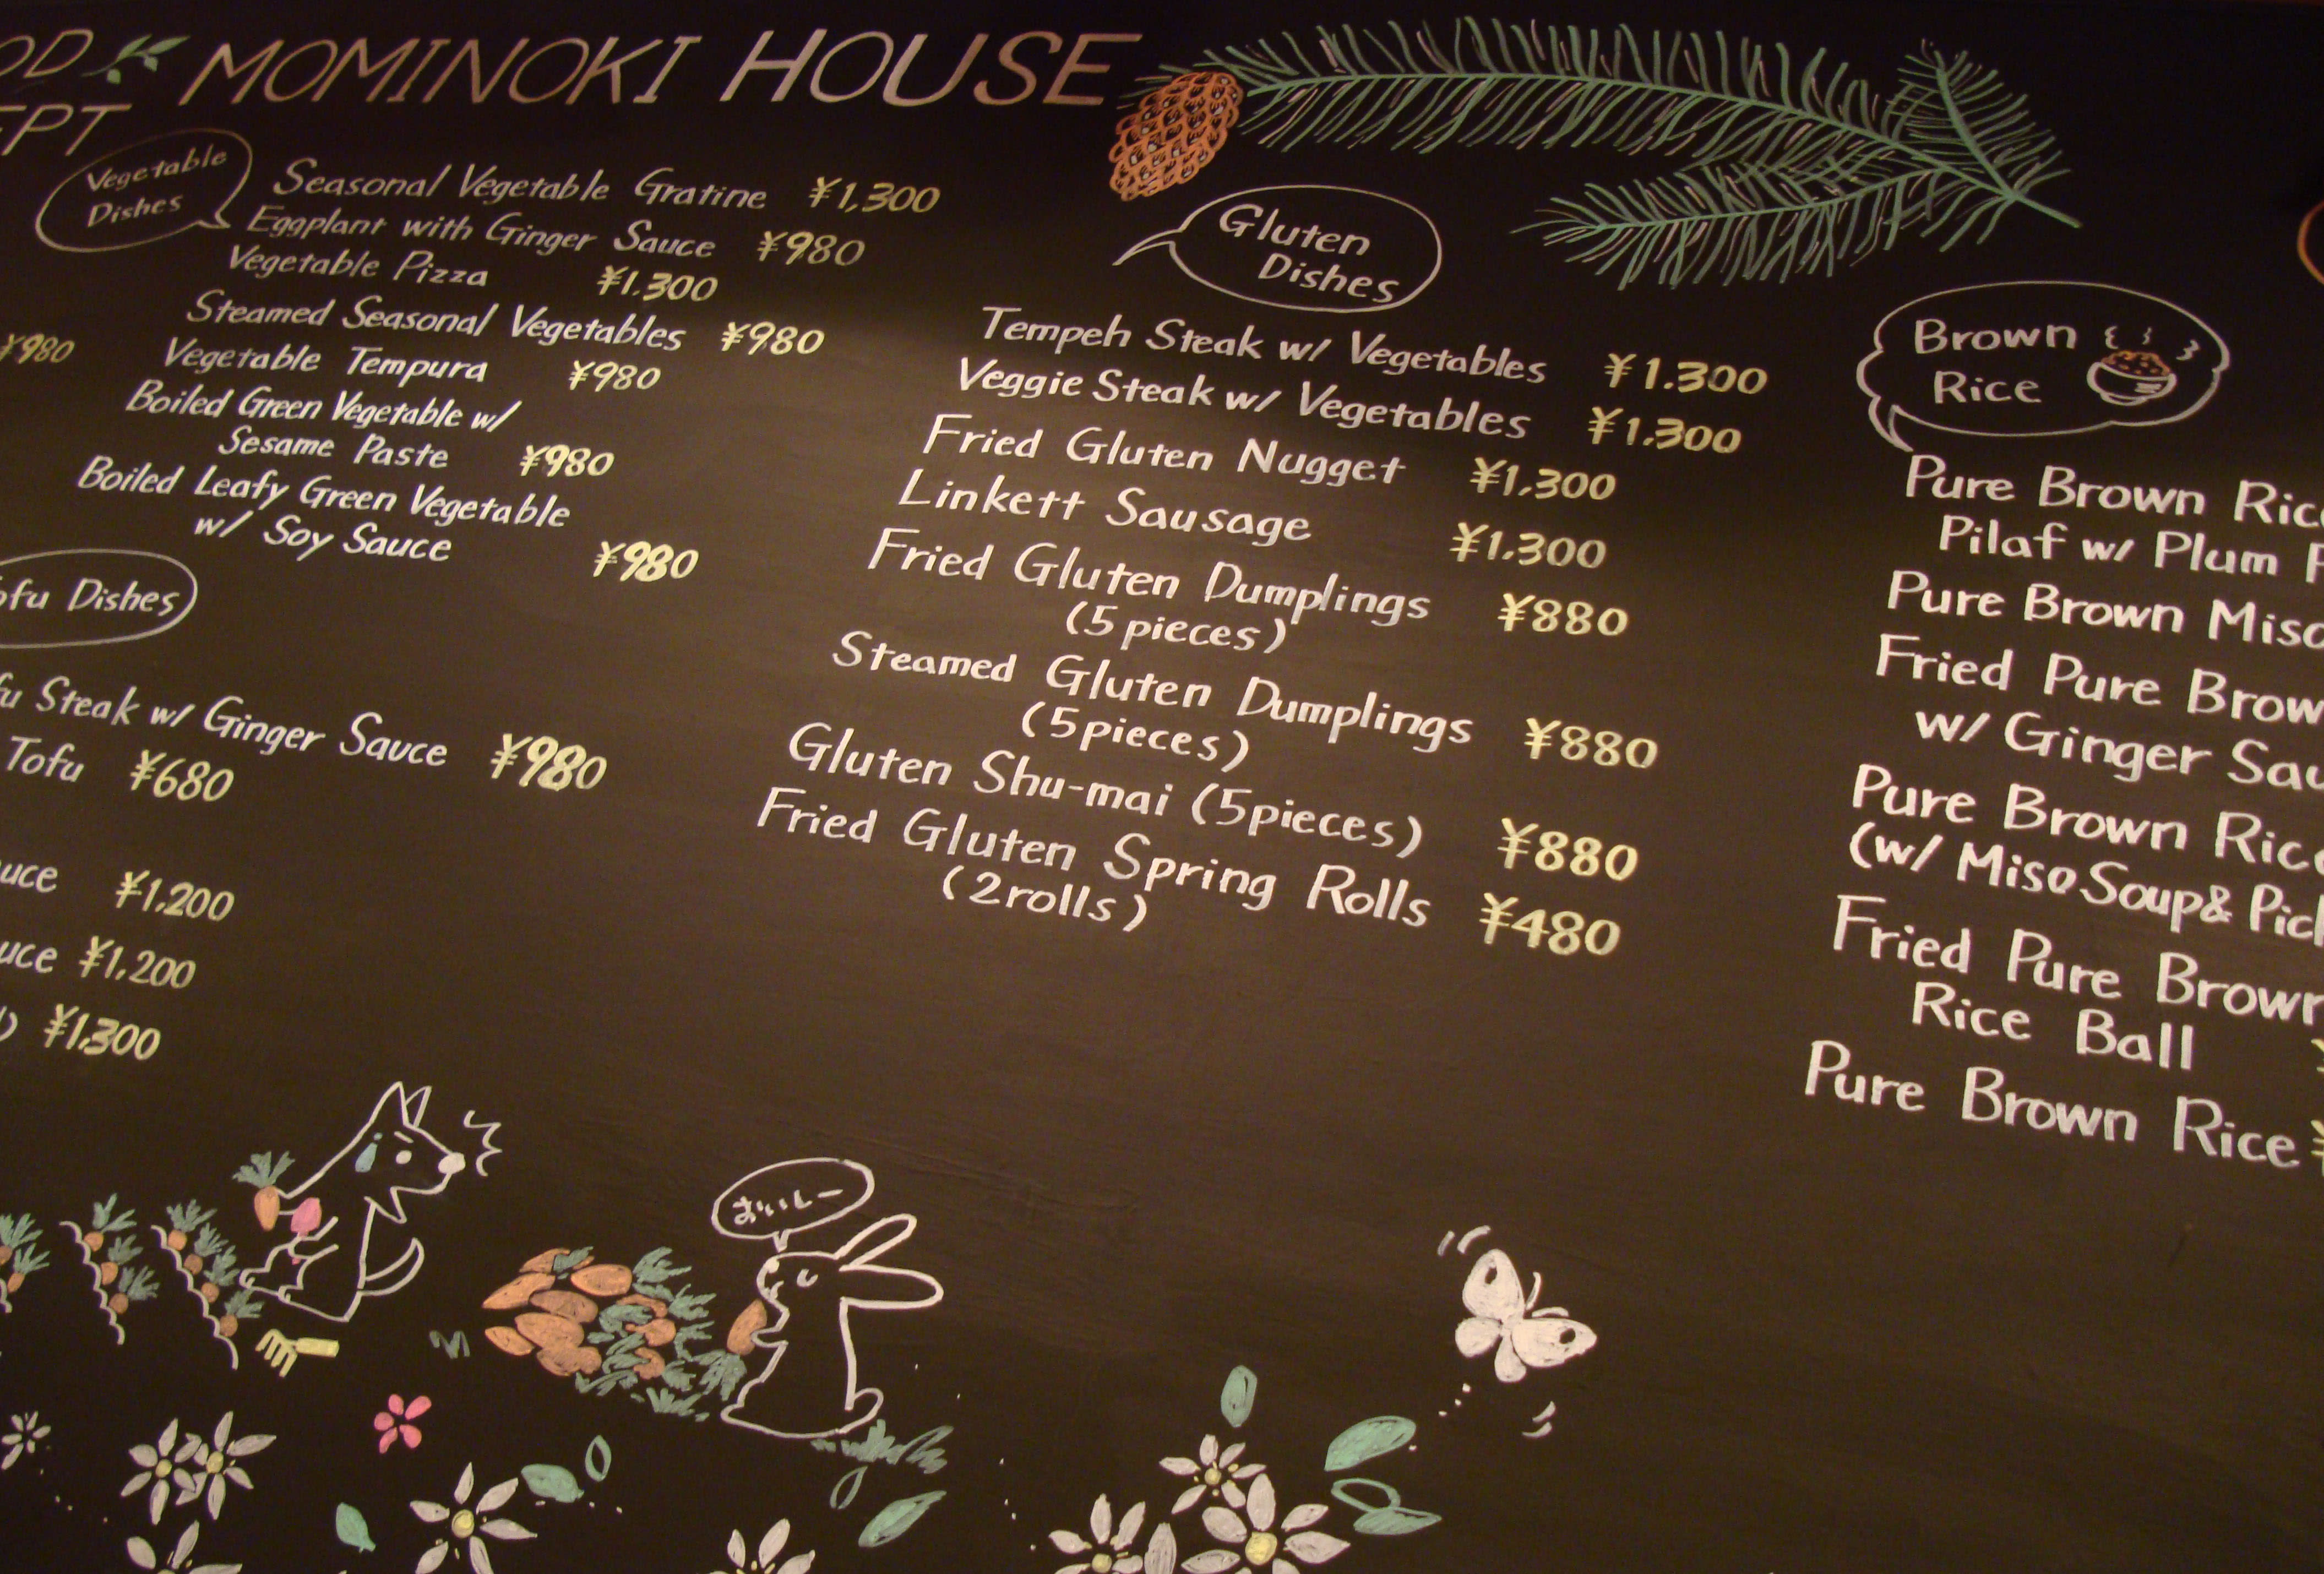 OD
MOMINOKI HOUSE
EPT
Vegetable
Dishes
Seasonal Vegetable Gratine ¥1,300
Eggplant with Ginger Sauce ¥980
Vegetable Pizza ¥1.300
Steamed Seasonal Vegetables ¥980
Vegetable Tempura ¥980
Boiled Green Vegetable w/
Sesame Paste ¥980
Boiled Leafy Green Vegetable
w/ Soy Sauce ¥980
¥980
ofu Dishes
fu Steak w/ Ginger Sauce ¥980
Tofu ¥680
uce ¥1,200
uce ¥1,200
) ¥1,300
Gluten
Dishes
Tempeh Steak w/ Vegetables ¥1.300
Veggie Steak w/ Vegetables ¥1.300
Fried Gluten Nugget ¥1,300
Linkett Sausage ¥1.300
Fried Gluten Dumplings ¥880
(5 pieces)
Steamed Gluten Dumplings ¥880
(5pieces)
Gluten Shu-mai (5pieces) ¥880
Fried Gluten Spring Rolls ¥480
(2rolls)
Brown
Rice
Pure Brown Ric
Pilaf w/ Plum
Pure Brown Miso
Fried Pure Brow
w/ Ginger Sau
Pure Brown Rice
(w/ Miso Soup & Pic
Fried Pure Brown
Rice Ball ¥
Pure Brown Rice ¥
おいしー